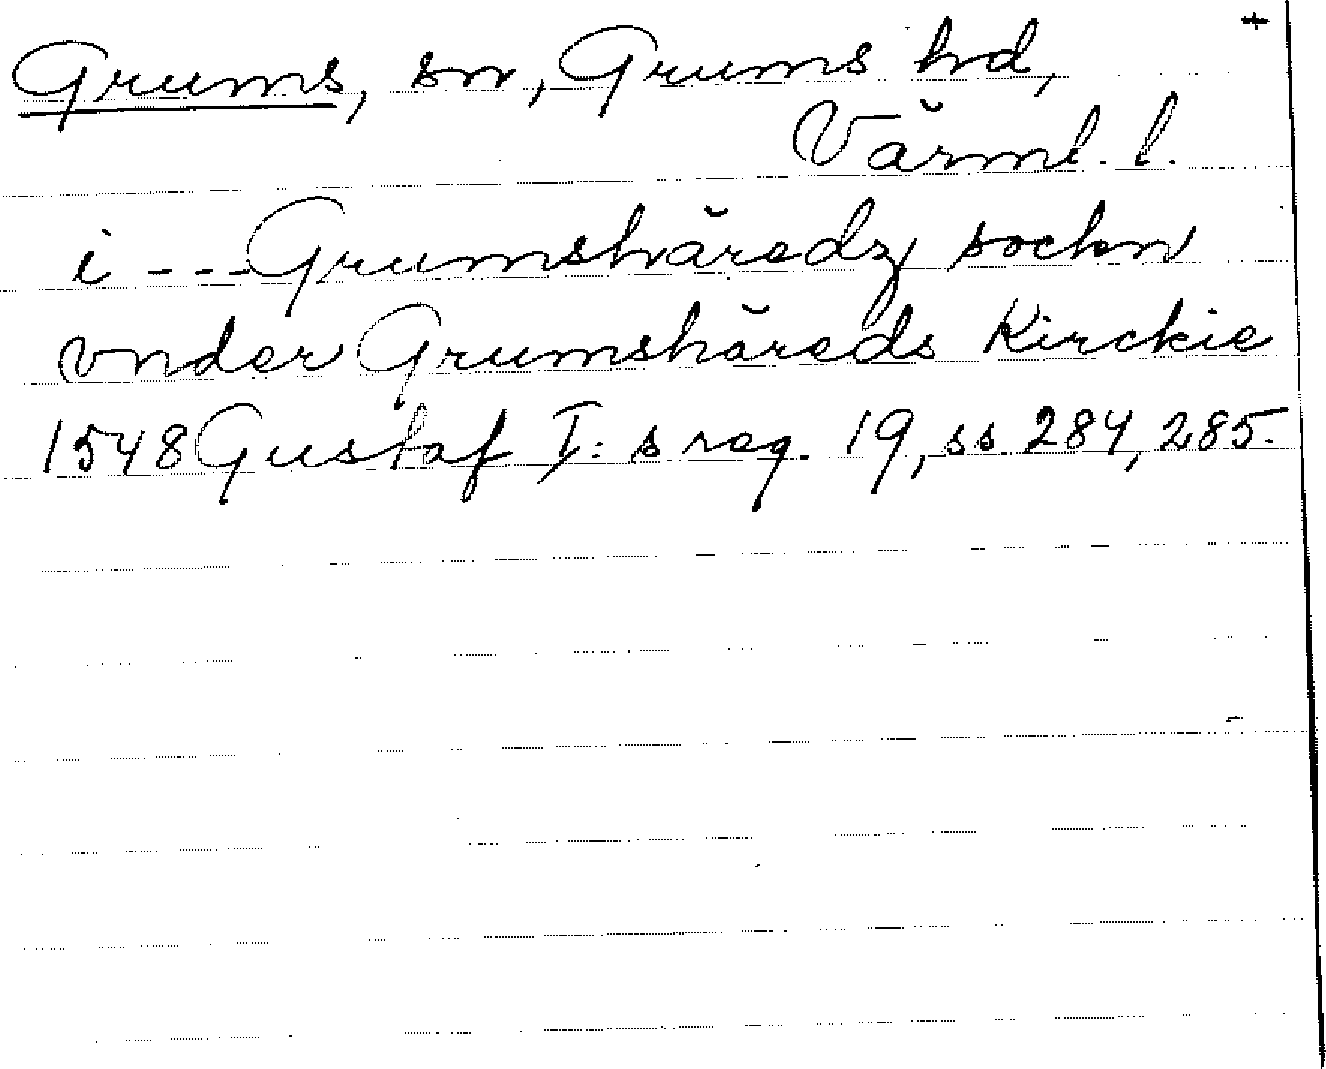 +
Grums, sn, Grums hd,
Värml. l.
i --- Grumshäredz sockn
vnder Grumshäreds Kirckie
1548 Gustaf I: s reg. 19, ss 284, 285.